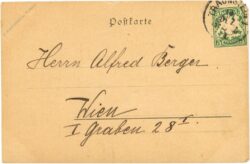 Postkarte
Herrn Alfred Berger
Wien
I Graben 28 I.